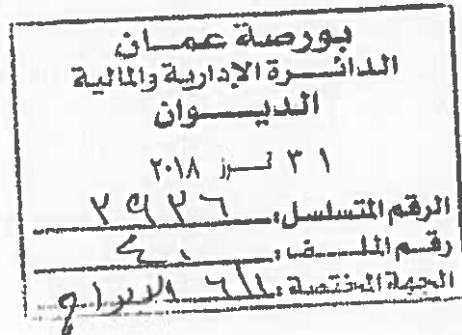 بورصة عمان
الدائرة الإدارية والمالية
الديوان
٣١ تموز ٢٠١٨
الرقم المتسلسل: ٣٩٢٦
رقم الملف:
الجهة المختصة: